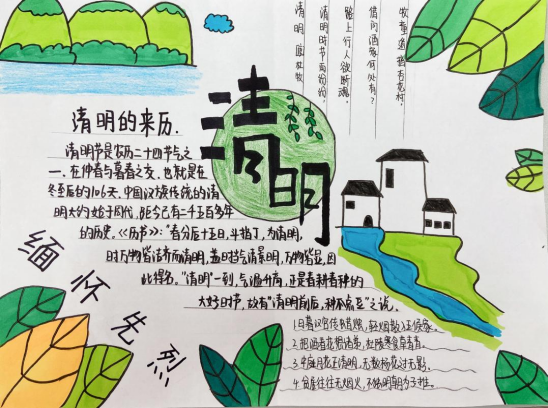 清明 唐 杜牧
清明时节雨纷纷，
路上行人欲断魂。
借问酒家何处有？
牧童遥指杏花村。
清明
清明的来历.
清明节是农历二十四节气之
一、在仲春与暮春之交，也就是在
冬至后的106天、中国汉族传统的清
明大约始于周代，距今已有二千五百多年
的历史。《历书》："春分后十五日，斗指丁，为清明，
时万物皆洁齐而清明，盖时当气清景明，万物皆显，因
此得名。"清明"一到，气温升高，正是春耕春种的
大好时节，故有"清明前后，种瓜点豆"之说。
缅怀先烈
1.日暮汉宫传蜡烛，轻烟散入五侯家。
2.
3.中庭月色正清明，无数杨花过无影。
4.